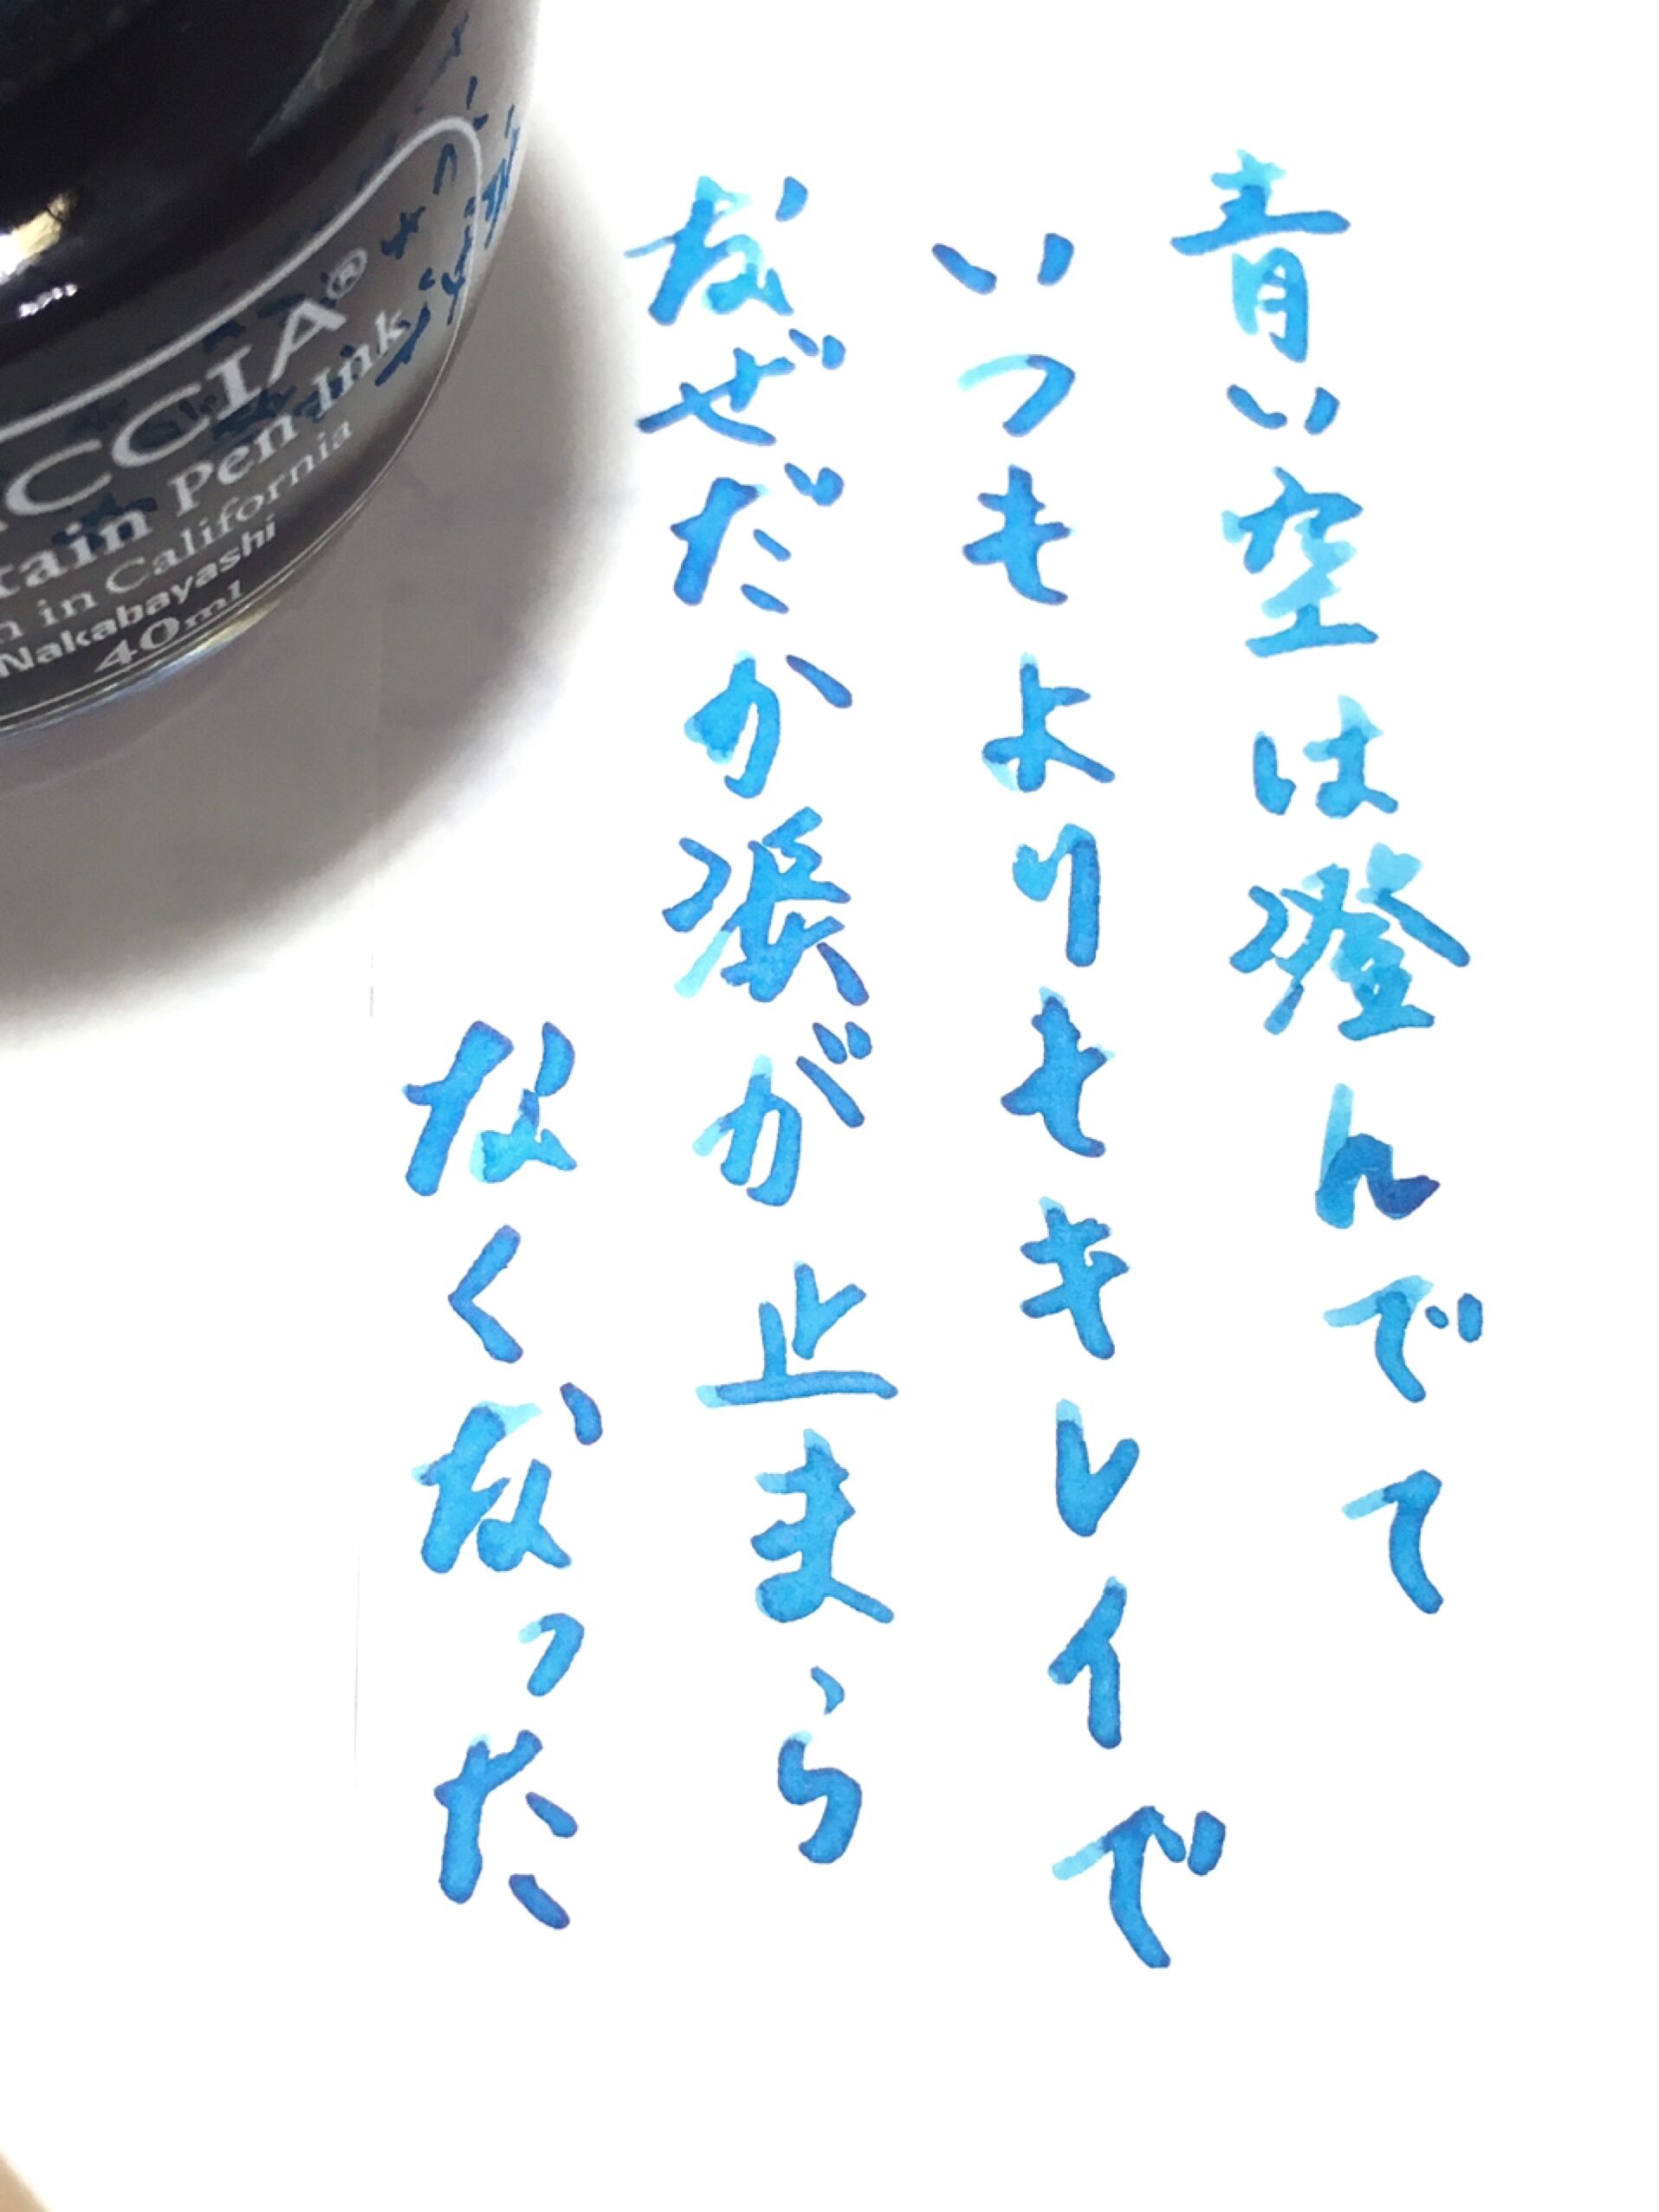 青い空は澄んでて
いつもよりもキレイで
なぜだか涙が止まら
なくなった
CCIA®
tain Pen Ink
n in California
Nakabayashi
40ml